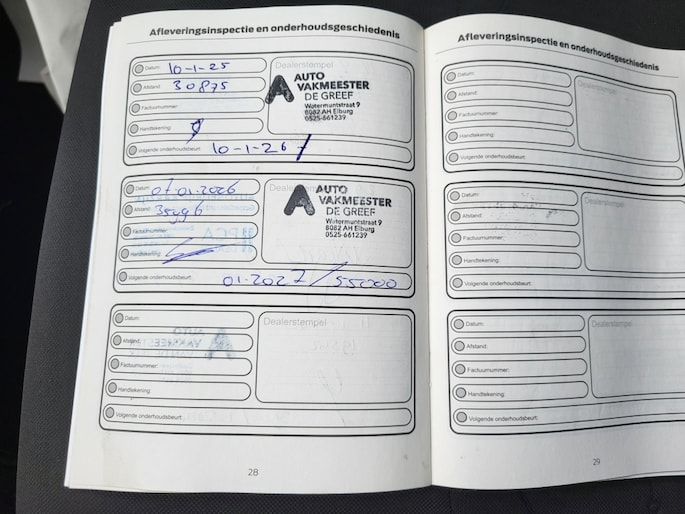 Afleveringsinspectie en onderhoudsgeschiedenis
Datum: 10-1-25
Afstand: 30875
Factuurnummer:
Handtekening:
Volgende onderhoudsbeurt: 10-1-26
Dealerstempel
AUTO
VAKMEESTER
DE GREEF
Watermuntstraat 9
8082 AH Elburg
0525-661239
Datum: 07-01-2026
Afstand:
Factuurnummer:
Handtekening:
Volgende onderhoudsbeurt: 01-2027 / 55200
AUTO
VAKMEESTER
DE GREEF
Watermuntstraat 9
8082 AH Elburg
0525-661239
Datum:
Afstand:
Factuurnummer:
Handtekening:
Volgende onderhoudsbeurt:
Dealerstempel
28
Afleveringsinspectie en onderhoudsgeschiedenis
Datum:
Afstand:
Factuurnummer:
Handtekening:
Volgende onderhoudsbeurt:
Dealerstempel
Datum:
Afstand:
Factuurnummer:
Handtekening:
Volgende onderhoudsbeurt:
Dealerstempel
Datum:
Afstand:
Factuurnummer:
Handtekening:
Volgende onderhoudsbeurt:
Dealerstempel
29